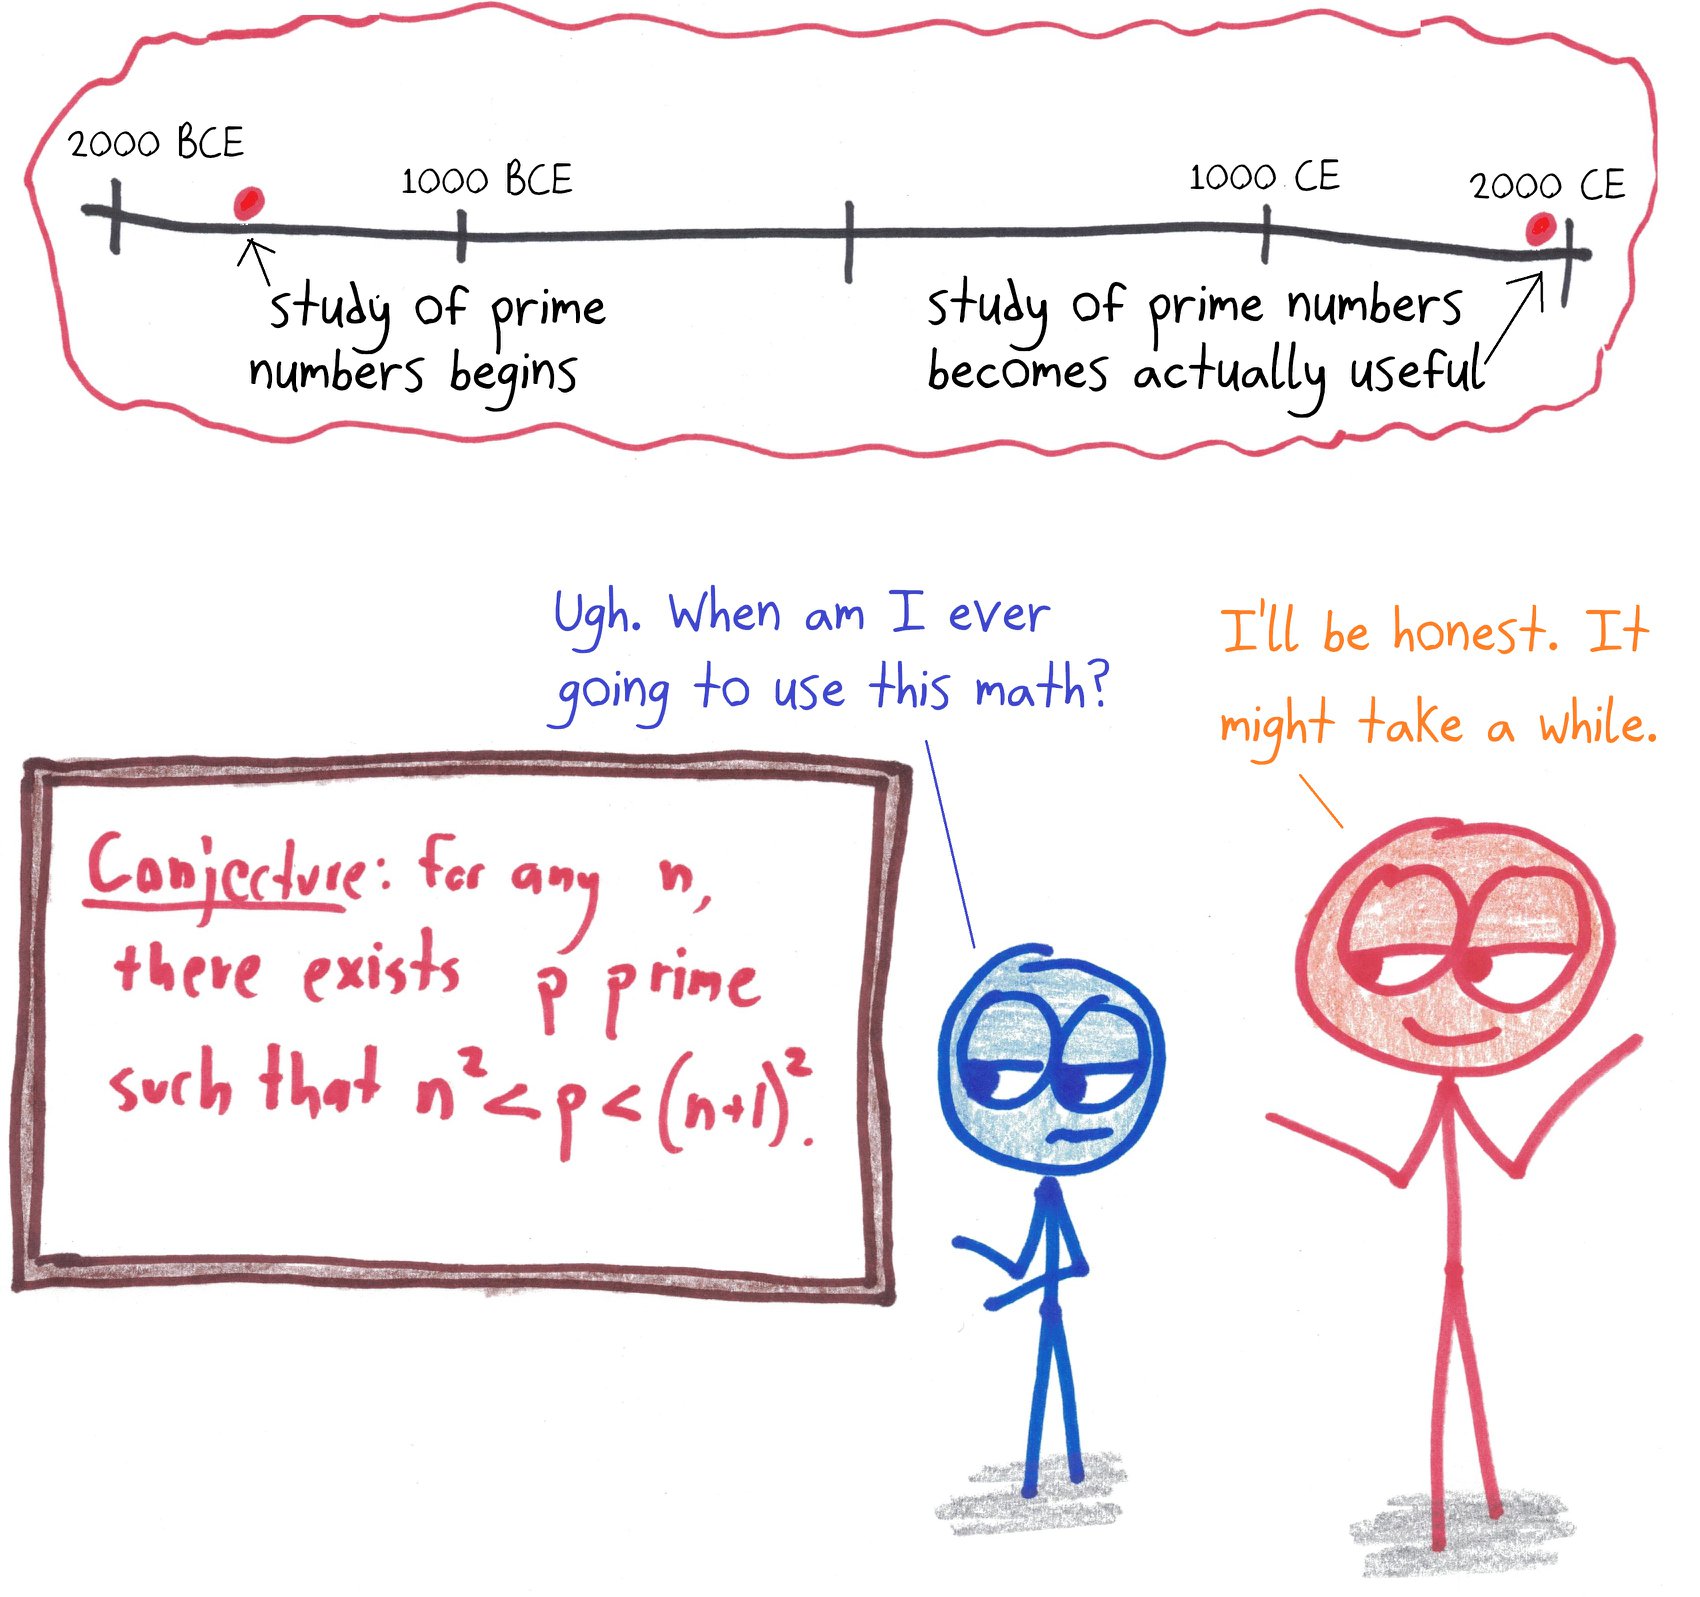 2000 BCE
1000 BCE
1000 CE
2000 CE
study of prime
numbers begins
study of prime numbers
becomes actually useful
Ugh. When am I ever
going to use this math?
I'll be honest. It
might take a while.
Conjecture: for any n,
there exists p prime
such that n² < p < (n+1)².